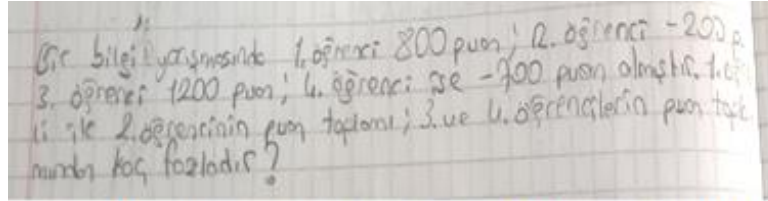 Bir bilgi yarışmasında 1. öğrenci 800 puan; 2. öğrenci -200 p.
3. öğrenci 1200 puan; 4. öğrenci ise -700 puan almıştır. 1. öğ
ile 2. öğrencinin puan toplamı; 3. ve 4. öğrencilerin puan topla
mından kaç fazladır?